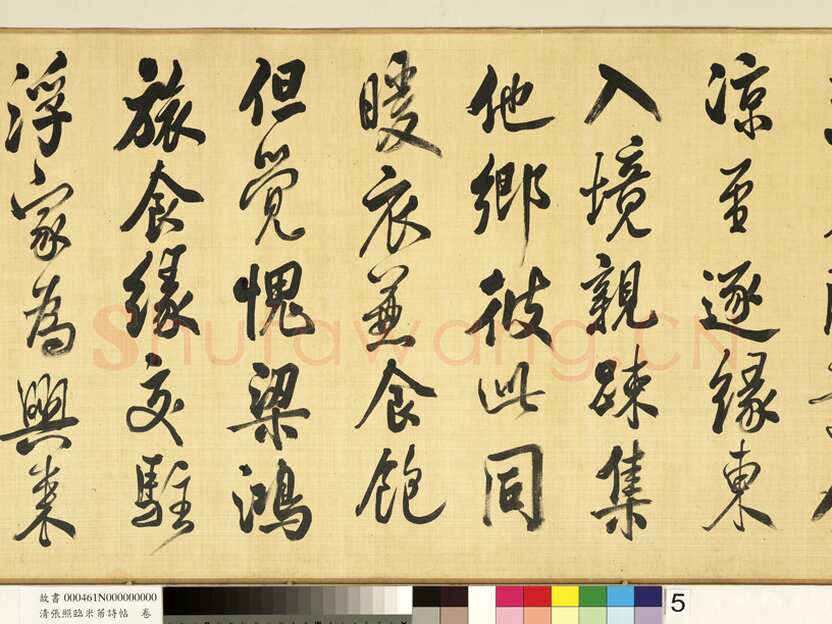 凉至遂緣東
入境親踈集
他鄉彼此同
暖衣兼食飽
但覺愧梁鴻
旅食緣交駐
浮家為興來
Shufawang.CN
故書 000461N000000000
清張照臨米芾詩帖 卷
5